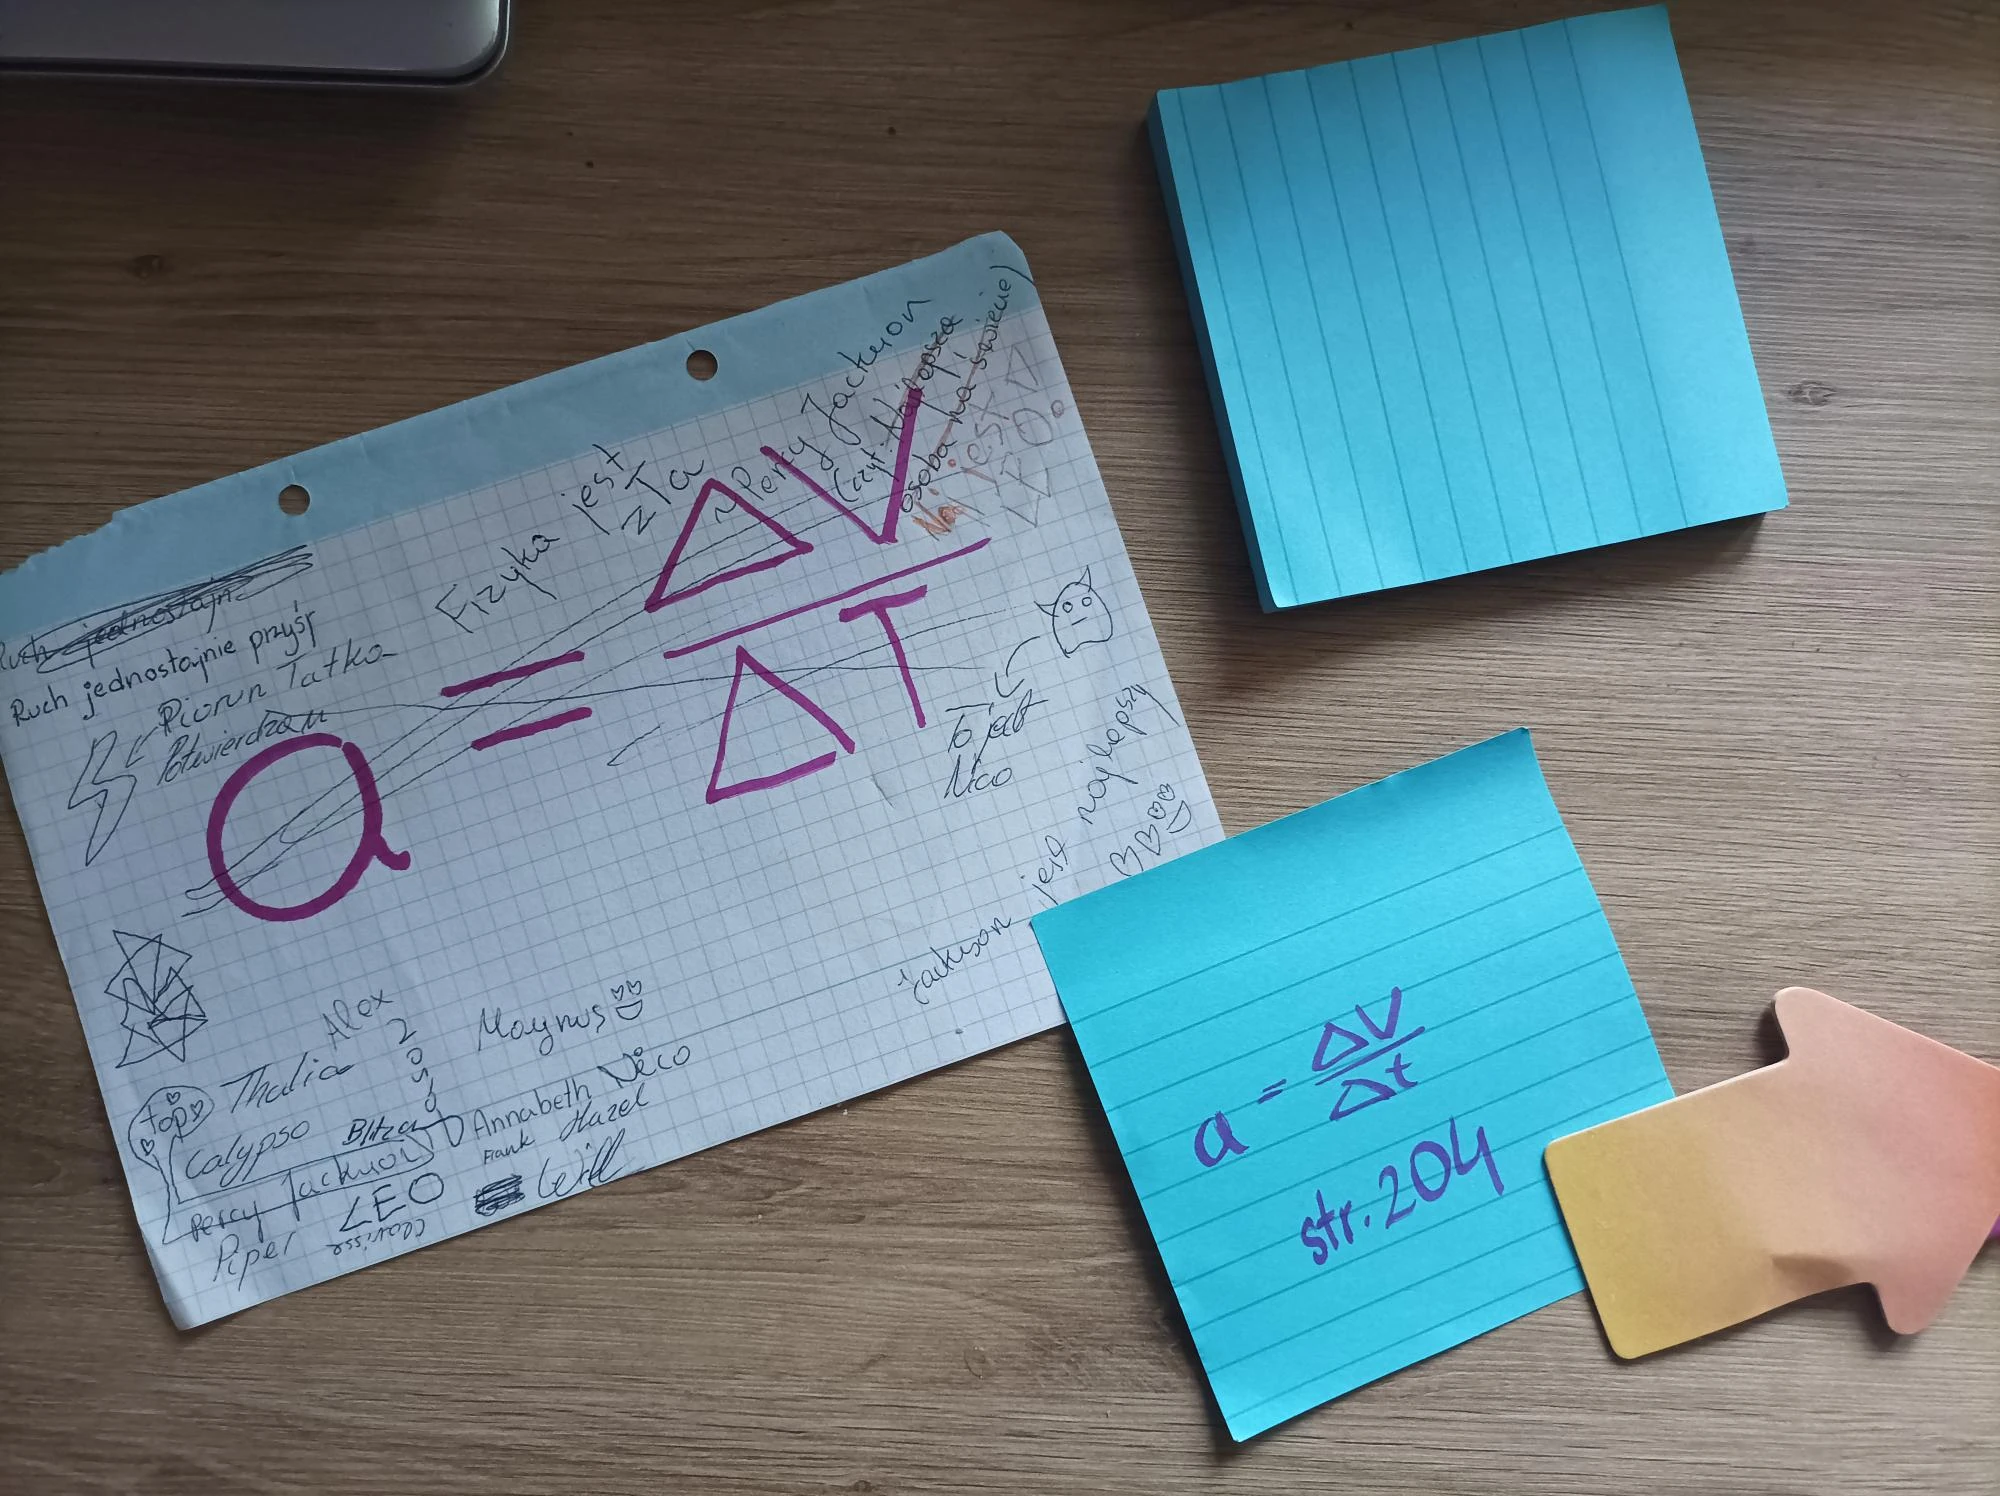 Ruch jednostajn
Ruch jednostajnie przyśp
Piorun Tatka
Potwierdzam
Fizyka jest
zła
~ Percy Jackson
(czyt. Najlepsza
osoba na świecie)
jest
LEO.
a = ΔV
ΔT
To jest
Nico
jackson jest najlepszy
Alex
Magnus
Thalia
top
Calypso
Blitzen
Annabeth
Nico
Frank
Hazel
Percy Jackson
Will
Piper
LEO
Clarisse
a = ΔV
Δt
str. 204